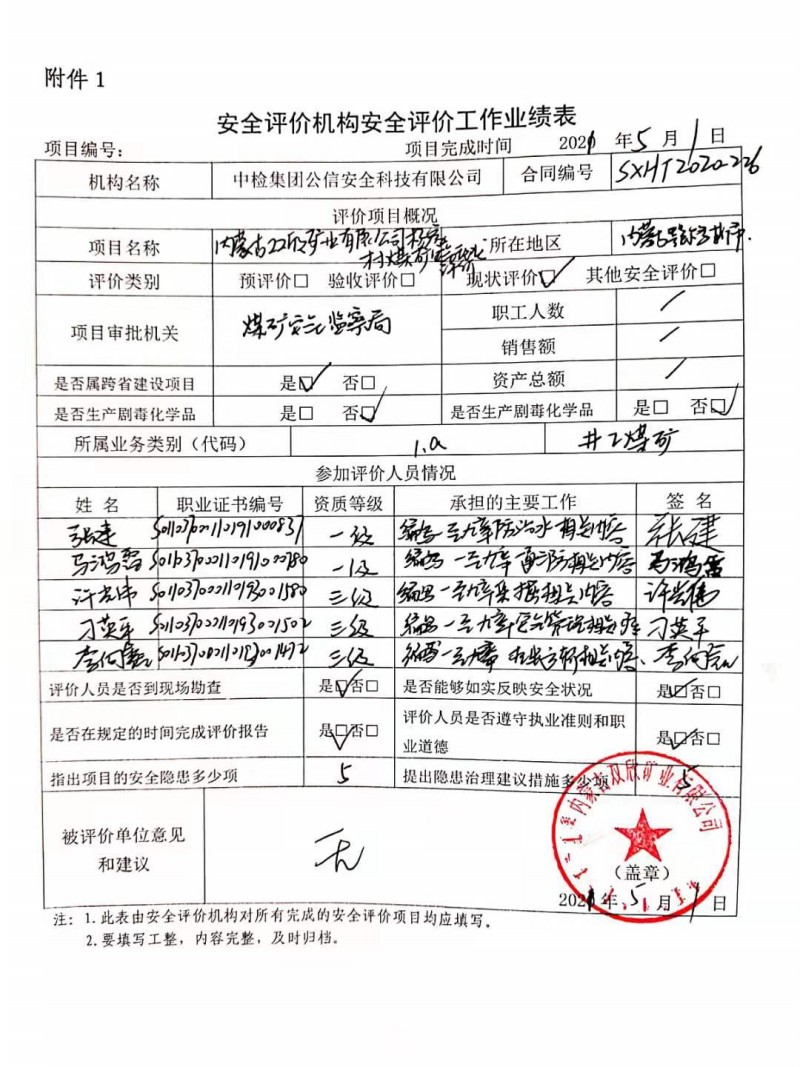 附件 1
安全评价机构安全评价工作业绩表
项目编号： 项目完成时间 2021 年 5 月 1 日
机构名称 中检集团公信安全科技有限公司 合同编号 SXHT2020-226
评价项目概况
项目名称 内蒙古双欣矿业有限公司杨家村煤矿 评价 所在地区 内蒙古鄂尔多斯市
评价类别 预评价□ 验收评价□ 现状评价☑ 其他安全评价□
项目审批机关 煤矿安全监察局 职工人数 /
销售额 /
资产总额 /
是否属跨省建设项目 是☑ 否□
是否生产剧毒化学品 是□ 否☑ 是否生产剧毒化学品 是□ 否☑
所属业务类别（代码） 1.a 井工煤矿
参加评价人员情况
姓 名 职业证书编号 资质等级 承担的主要工作 签 名
张建 S011037000110191000837 一级 编写一至九章防治水相关内容 张建
马鸿雷 S011037000110191000780 一级 编写一至九章 消防相关内容 马鸿雷
许吉伟 S011037000110193001580 三级 编写一至九章采掘相关内容 许吉伟
刁英平 S011037000110193001502 三级 编写一至九章安全管理相关内容 刁英平
三级 编写一至九章 相关内容
评价人员是否到现场勘查 是☑否□ 是否能够如实反映安全状况 是☑否□
是否在规定的时间完成评价报告 是☑否□ 评价人员是否遵守执业准则和职业道德 是☑否□
指出项目的安全隐患多少项 5 提出隐患治理建议措施多少项 5
被评价单位意见和建议 无
内蒙古双欣矿业有限公司
（盖章）
2021 年 5 月 1 日
注： 1. 此表由安全评价机构对所有完成的安全评价项目均应填写。
2. 要填写工整，内容完整，及时归档。